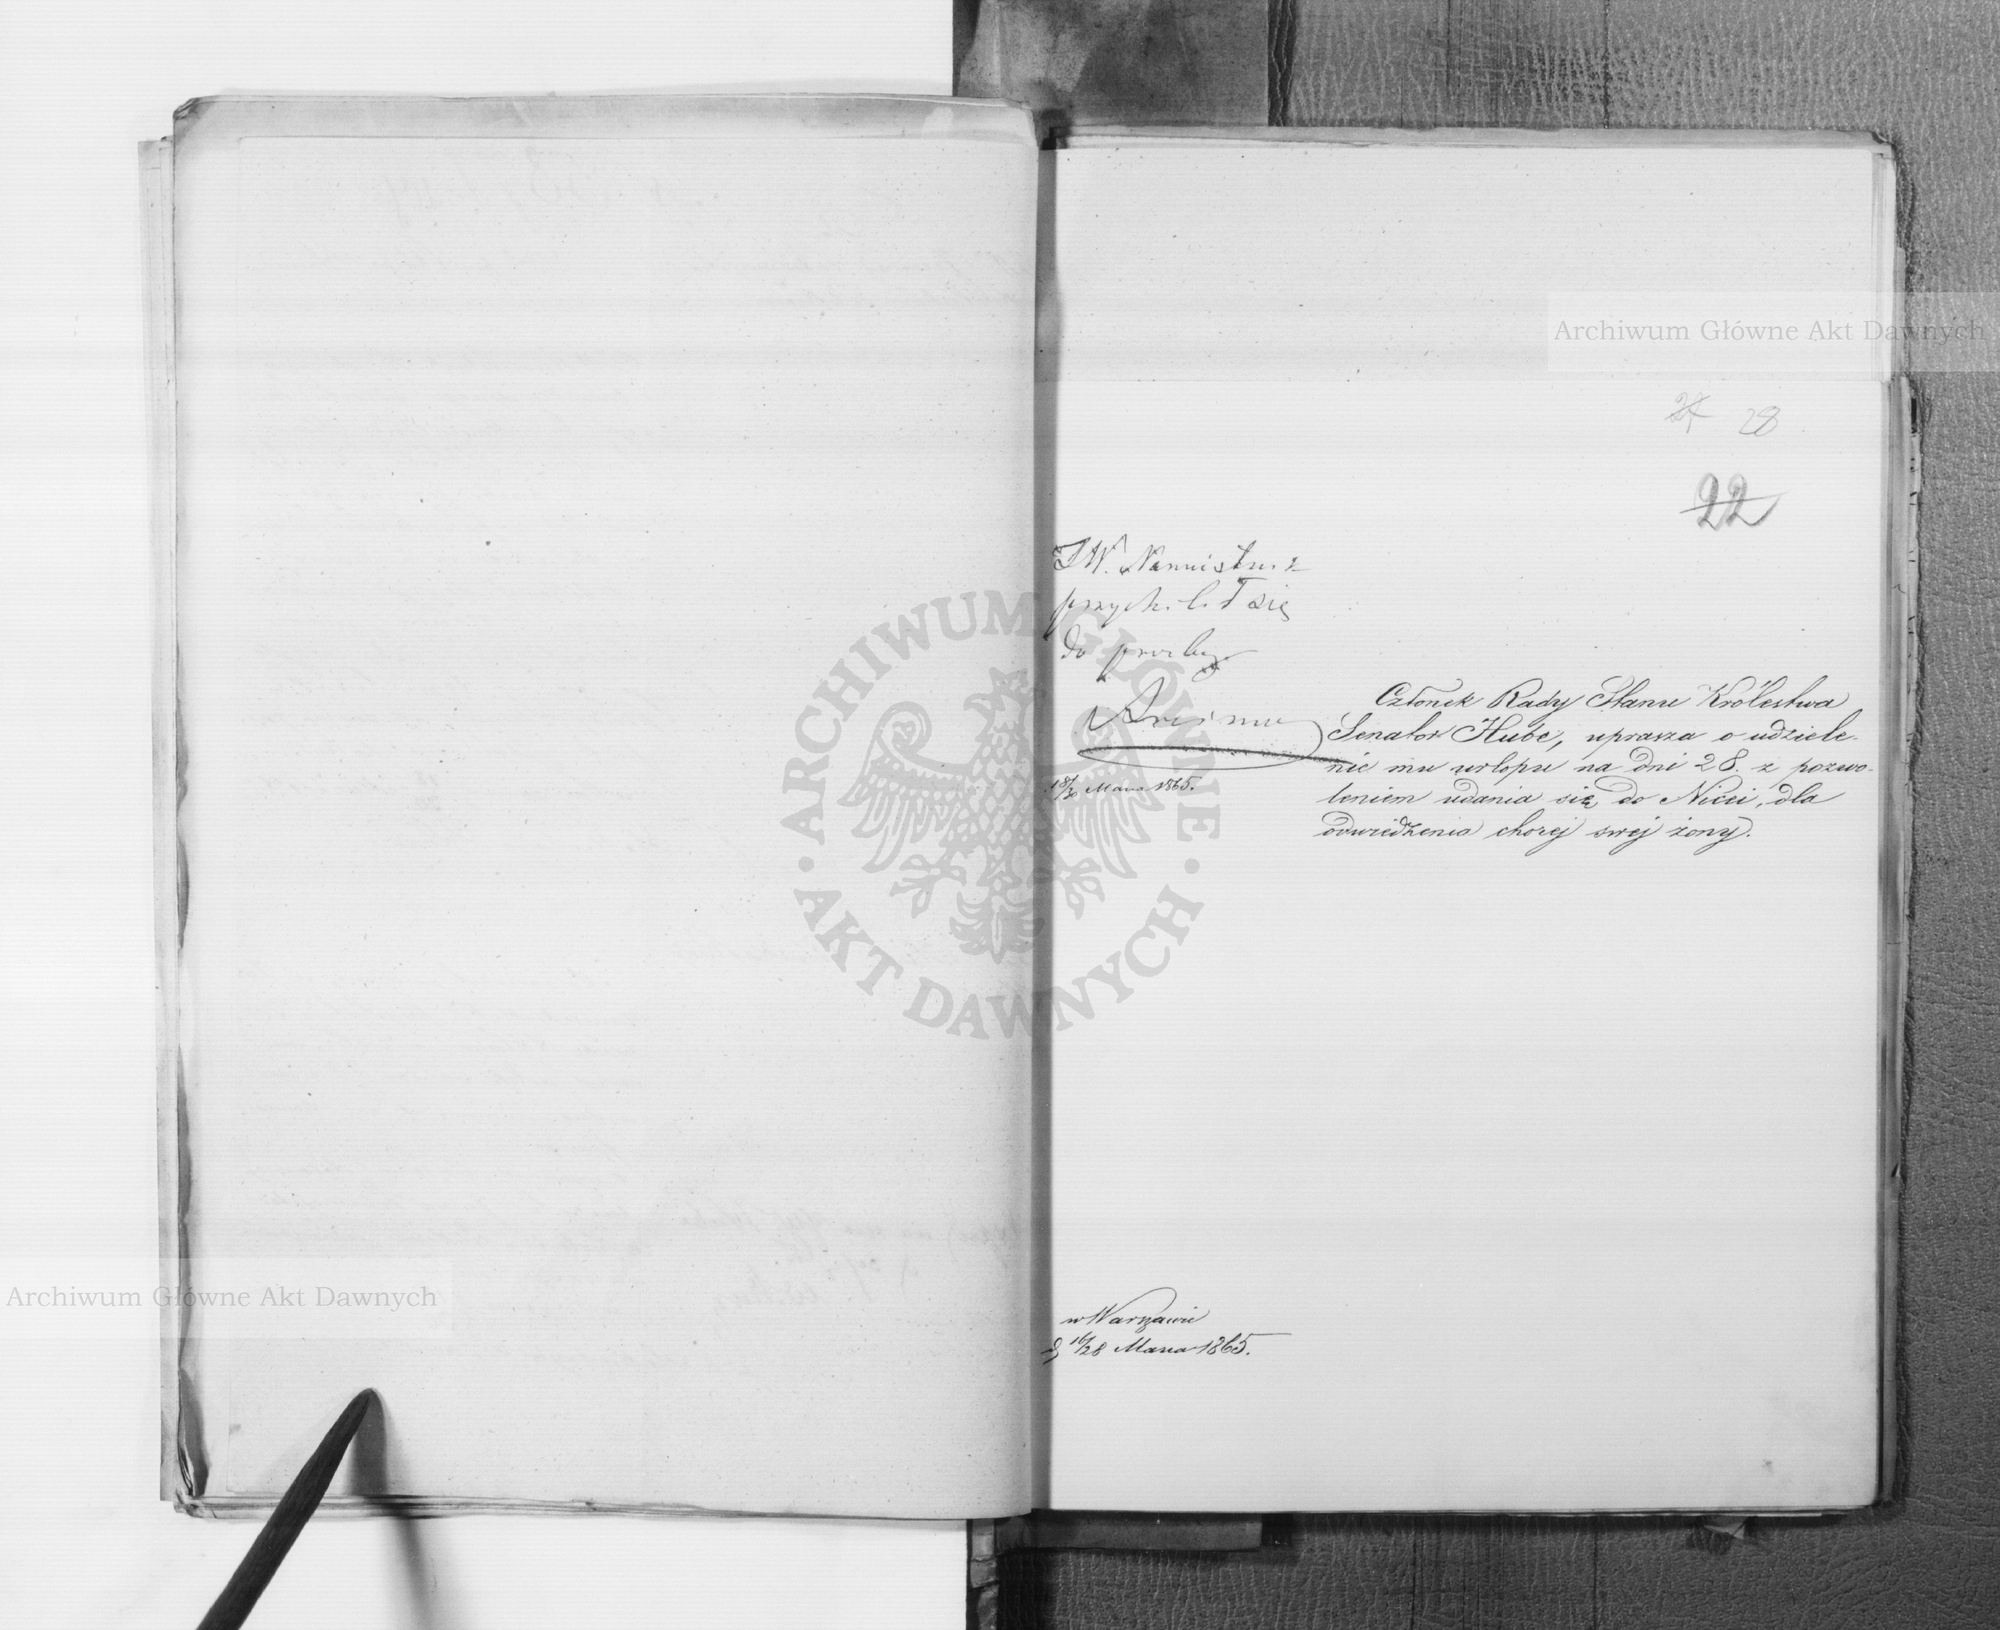 Archiwum Główne Akt Dawnych
28
22
JW. Namiestnik
przychilił się
do prośby
18/30 Marca 1865.
Członek Rady Stanu Królestwa
Senator Hube, uprasza o udziele-
nie mu urlopu na dni 28. z pozwo-
leniem udania się do Nicei, dla
odwiedzenia chorej swej żony.
ARCHIWUM GŁÓWNE
AKT DAWNYCH
Archiwum Główne Akt Dawnych
w Warszawie
d. 16/28 Marca 1865.